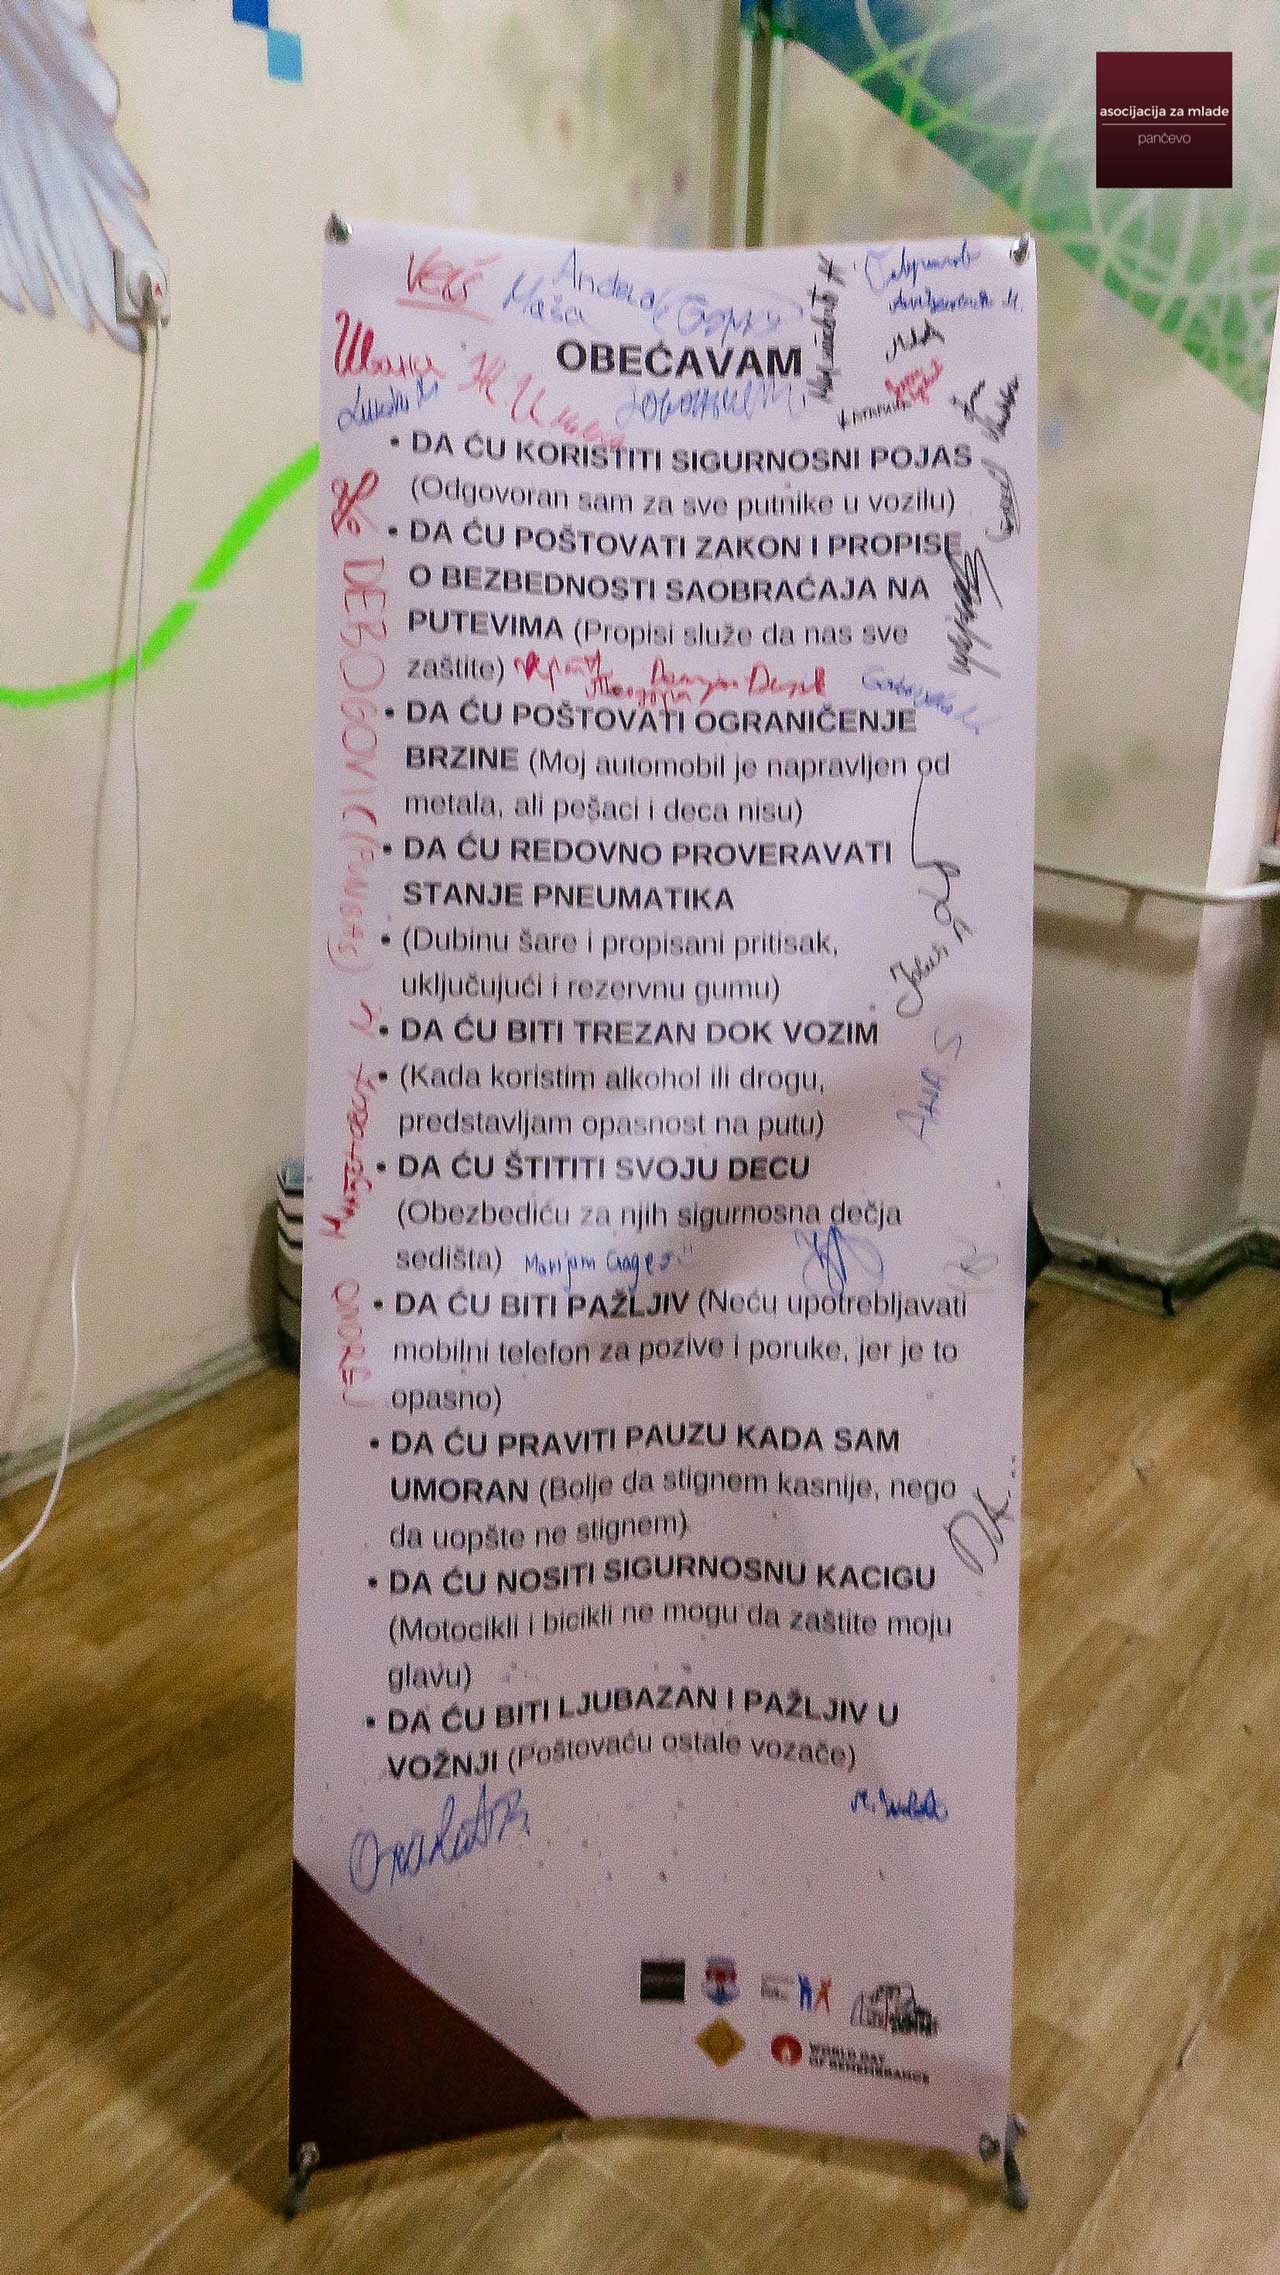 asocijacija za mlade
pančevo
Maša
Anđela
OBEĆAVAM
• DA ĆU KORISTITI SIGURNOSNI POJAS
(Odgovoran sam za sve putnike u vozilu)
• DA ĆU POŠTOVATI ZAKON I PROPISE
O BEZBEDNOSTI SAOBRAĆAJA NA
PUTEVIMA (Propisi služe da nas sve
zaštite)
• DA ĆU POŠTOVATI OGRANIČENJE
BRZINE (Moj automobil je napravljen od
metala, ali pešaci i deca nisu)
• DA ĆU REDOVNO PROVERAVATI
STANJE PNEUMATIKA
• (Dubinu šare i propisani pritisak,
uključujući i rezervnu gumu)
• DA ĆU BITI TREZAN DOK VOZIM
• (Kada koristim alkohol ili drogu,
predstavljam opasnost na putu)
• DA ĆU ŠTITITI SVOJU DECU
(Obezbediću za njih sigurnosna dečja
sedišta)
• DA ĆU BITI PAŽLJIV (Neću upotrebljavati
mobilni telefon za pozive i poruke, jer je to
opasno)
• DA ĆU PRAVITI PAUZU KADA SAM
UMORAN (Bolje da stignem kasnije, nego
da uopšte ne stignem)
• DA ĆU NOSITI SIGURNOSNU KACIGU
(Motocikli i bicikli ne mogu da zaštite moju
glavu)
• DA ĆU BITI LJUBAZAN I PAŽLJIV U
VOŽNJI (Poštovaću ostale vozače)
WORLD DAY
OF REMEMBRANCE